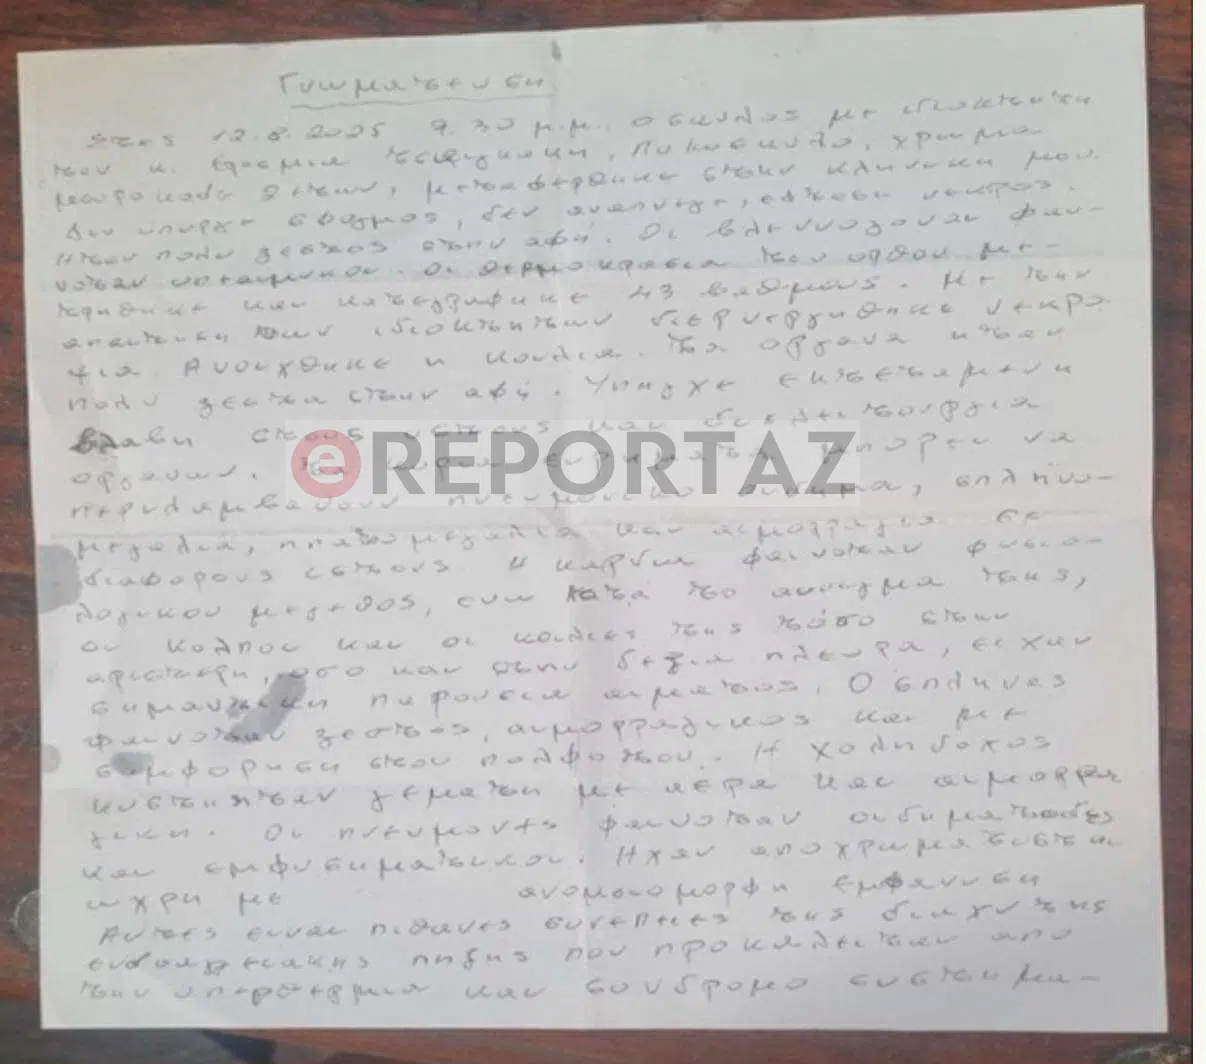 Γνωματευση
Στης 12.8.2025 9.30 μ.μ. ο σκυλος με ιδιοκτητη
τον κ. , λυκοσκυλο, χρωμα
μαυροκαφε 9 ετων, μεταφερθηκε στην κλινικη μου.
Δεν υπηρχε σφυγμος, δεν αναπνεε, εφτασε νεκρος.
Ηταν πολυ ζεστος στην αφη. Οι βλεννογονοι φαι-
νοταν . Οι θερμοκρασια του ορθου με-
τρηθηκε και καταγραφηκε 43 βαθμους. Με την
απαιτηση των ιδιοκτητων διερευνηθηκε νεκρο
ψια. Ανοιχθηκε η κοιλια. Τα οργανα ηταν
πολυ ζεστα στην αφη. Υπηρχε εκτεταμενη
βλαβη στους ιστους και δυσλειτουργια
οργανων. Τα κυρια ευρηματα μπορει να
περιλαμβανουν πνευμονικο οιδημα, σπληνο-
μεγαλια, ηπατομεγαλια και αιμορραγια σε
διαφορους ιστους. Η καρδια φαινοταν φυσιο-
λογικου μεγεθος, ενω κατα το ανοιγμα της,
οι κολποι και οι κοιλιες της τοσο στην
αριστερη, οσο και στην δεξια πλευρα, ειχαν
σημαντικη παρουσια αιματος. Ο σπληνας
φαινοταν ζεστος, αιμορραγικος και με
συμφορηση στον πολφο του. Η χοληδοχος
κυστη ηταν γεματη με αερα και αιμορρα
γικη. Οι πνευμονες φαινοταν οιδηματωδες
και εμφυσηματικοι. Ηταν αποχρωματισμενοι
ωχρη με ανομοιομορφη εμφανιση
Αυτες ειναι πιθανες συνεπειες της διαχυτης
ενδοαγγειακης πηξης που προκαλειται απο
την υπερθερμια και συνδρομο συστημα-
eREPORTAZ